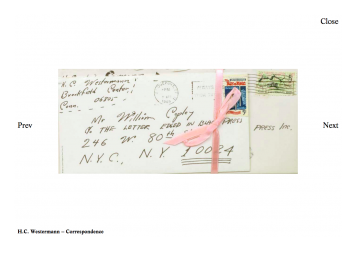 Close
H.C. Westermann!
Brookfield Center,!
Conn. 06805
Mr William Copley
% THE LETTER EDGED IN BLACK PRESS
246 W. 80th
N.Y.C., N.Y. 10024
PRESS INC.
Prev
Next
H.C. Westermann – Correspondence